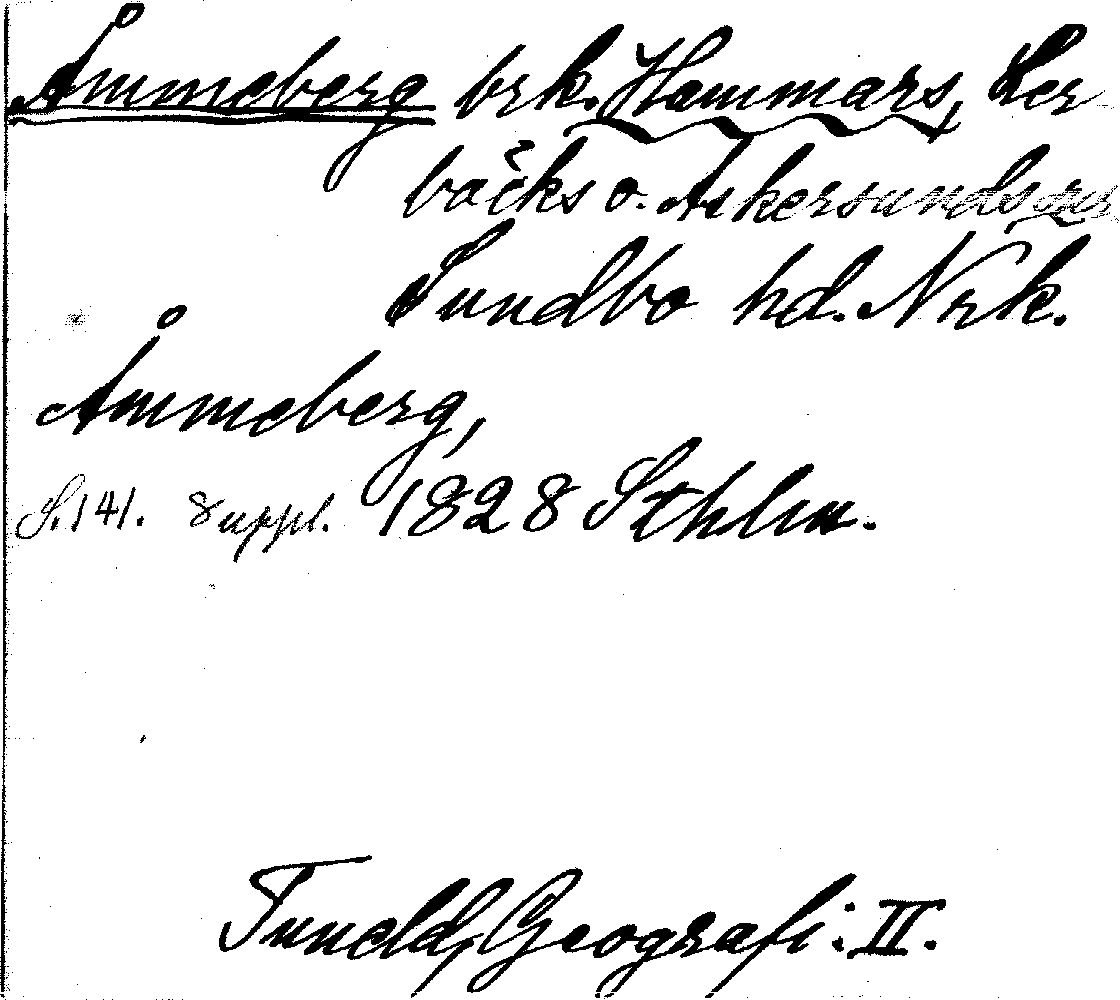 Åmmeberg brk. Hammars, Ler
bäcks o. Askersunds snr
Sundbo hd. Nrk.
Åmmeberg,
S. 141. 8 uppl. 1828 Sthlm.
Tuneld, Geografi: II.